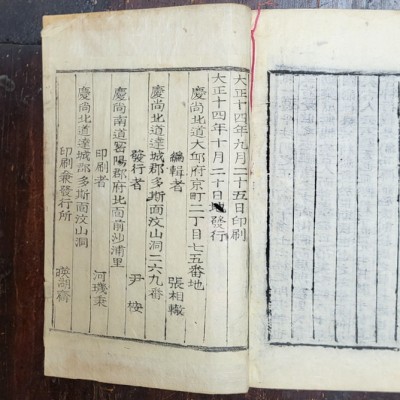 大正十四年九月二十五日印刷
大正十四年十月二十日發行
慶尙北道大邱府京町二丁目七五番地
編輯者 張相轍
慶尙北道達城郡多斯面汶山洞二六九番
發行者 尹
慶尙南道密陽郡府北面前沙浦里
印刷者 河璣秉
慶尙北道達城郡多斯面汶山洞
印刷兼發行所 暎湖齋